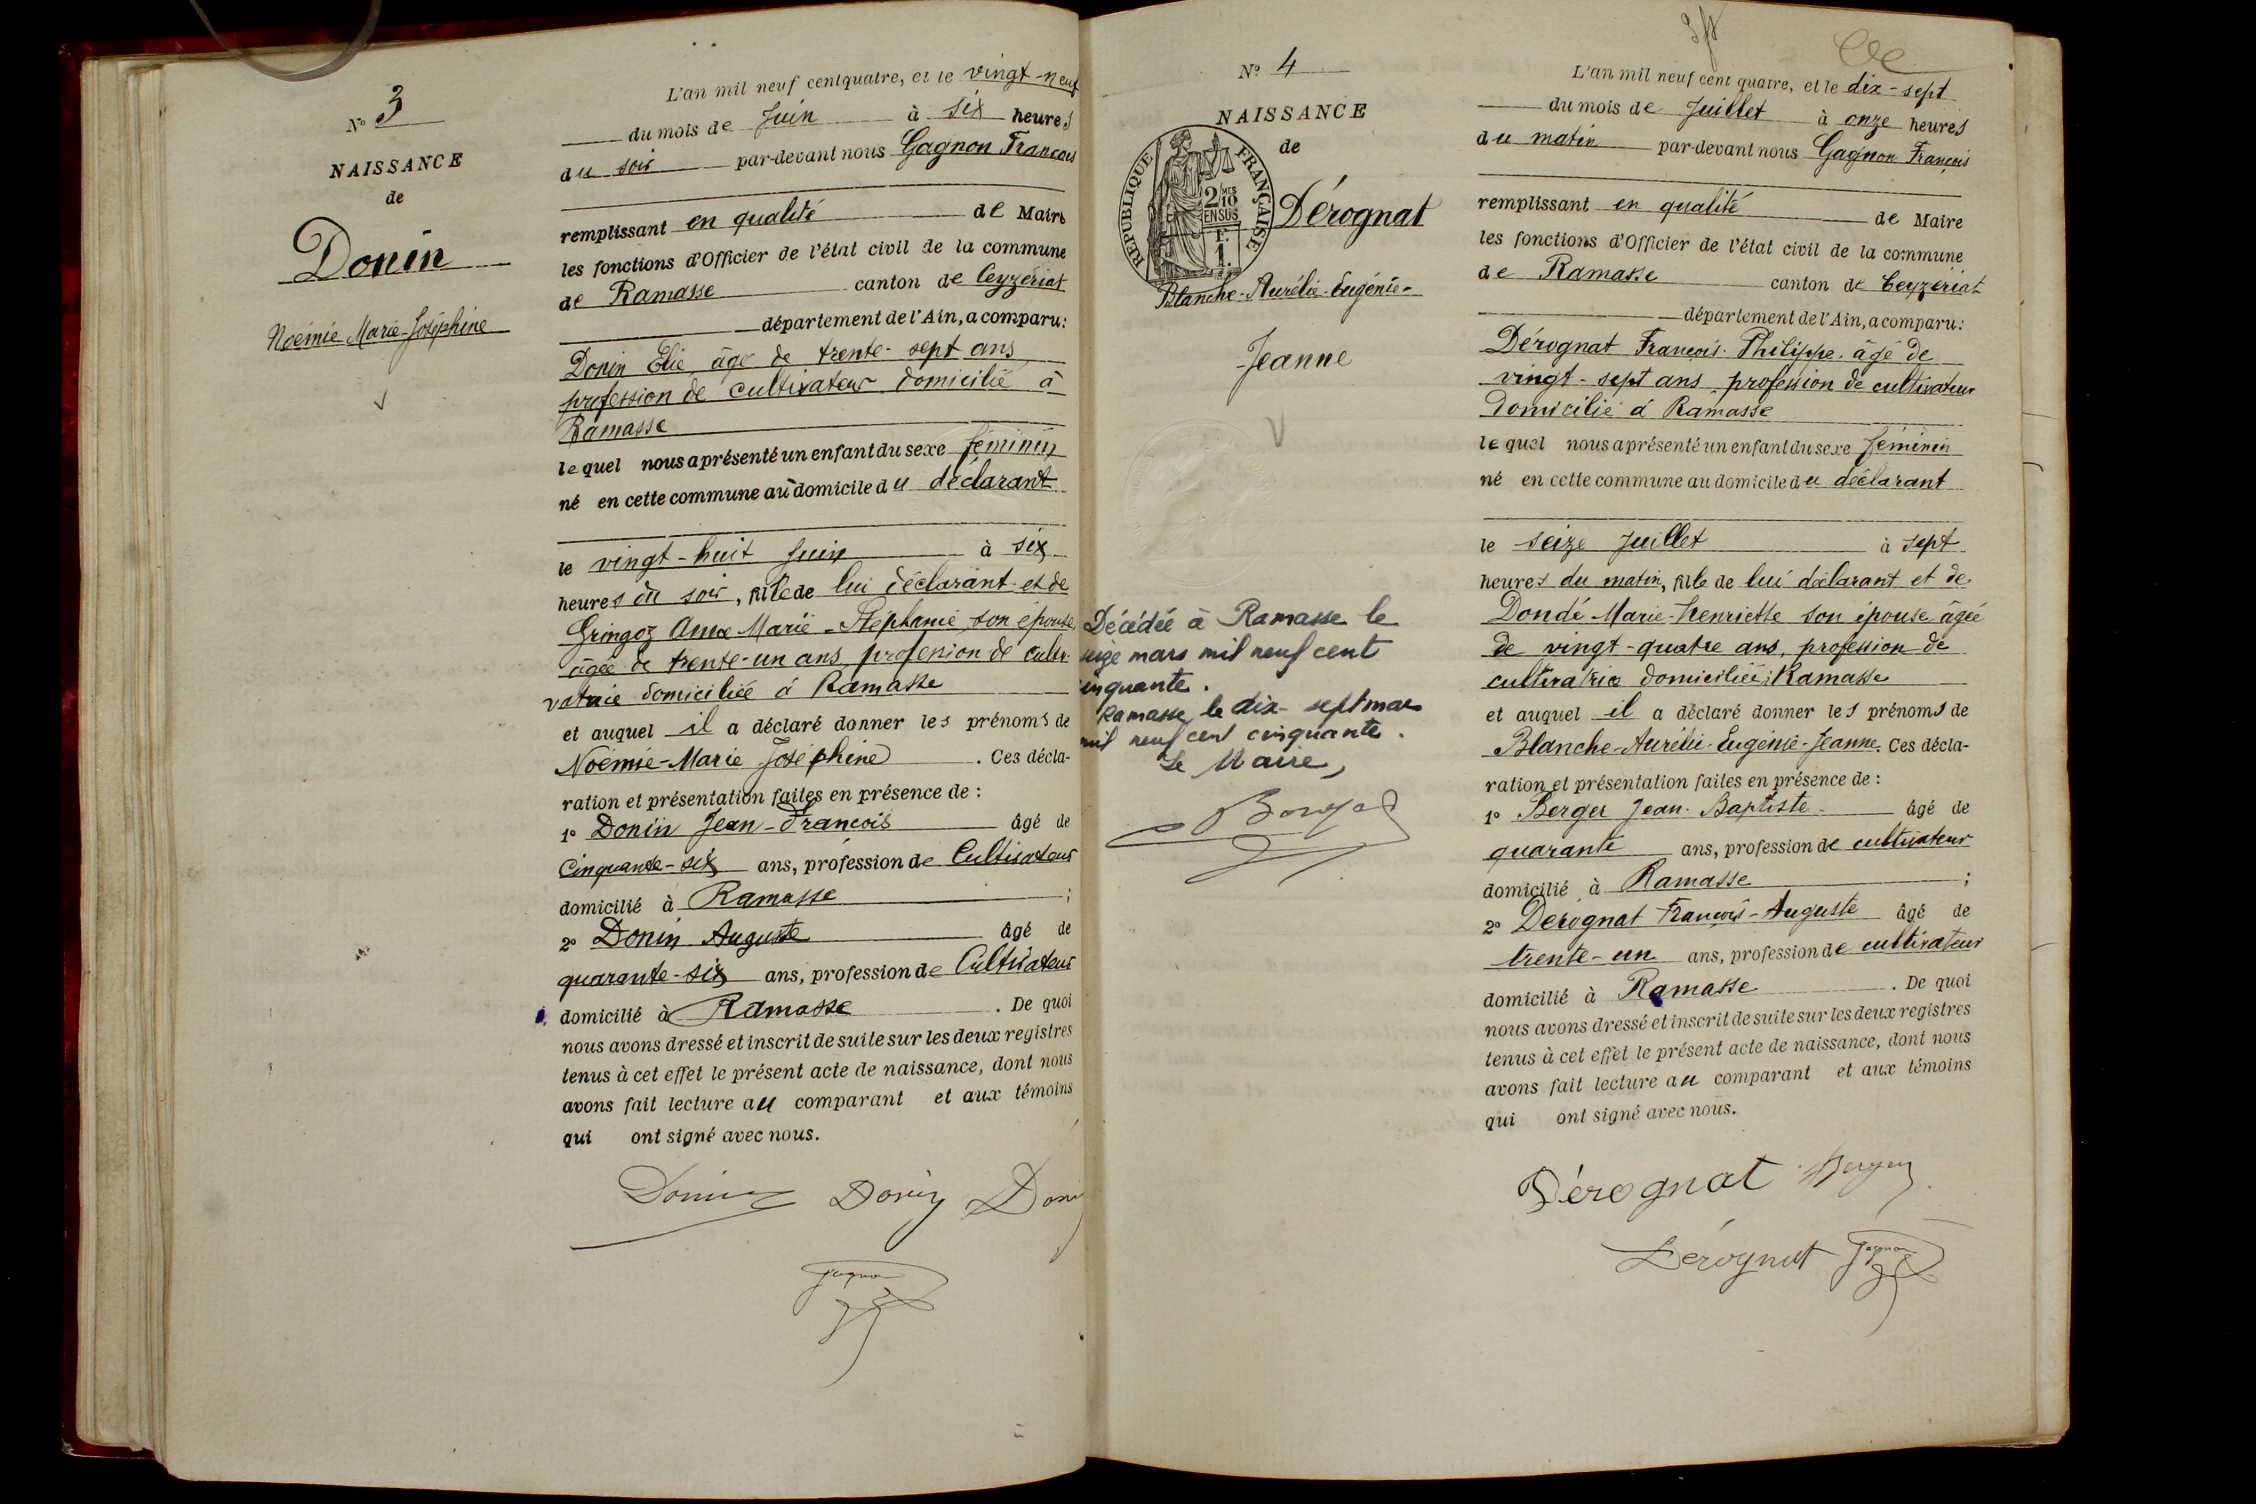 Nº 3
NAISSANCE
de
Donin
Noémie Marie-Joséphine
L'an mil neuf cent quatre, et le vingt-neuf
du mois de Juin à six heures
du soir par-devant nous Gagnon François
remplissant en qualité de Maire
les fonctions d'Officier de l'état civil de la commune
de Ramasse canton de Ceyzériat
département de l'Ain, a comparu:
Donin Elie, âgé de trente-sept ans
profession de cultivateur domicilié à
Ramasse
lequel nous a présenté un enfant du sexe féminin
né en cette commune au domicile du déclarant
le vingt-huit Juin à six
heures du soir, fille de lui déclarant et de
Gringoz Marie-Stéphanie son épouse
âgée de trente-un ans, profession de culti-
vatrice domiciliée à Ramasse
et auquel il a déclaré donner les prénoms de
Noémie-Marie Joséphine. Ces décla-
ration et présentation faites en présence de :
1º Donin Jean-François âgé de
Cinquante-six ans, profession de Cultivateur
domicilié à Ramasse ;
2º Donin Auguste âgé de
quarante-six ans, profession de Cultivateur
domicilié à Ramasse. De quoi
nous avons dressé et inscrit de suite sur les deux registres
tenus à cet effet le présent acte de naissance, dont nous
avons fait lecture au comparant et aux témoins
qui ont signé avec nous.
Donin Donin Donin
Gagnon
Nº 4
NAISSANCE
de
REPUBLIQUE FRANÇAISE
2/10MES
EN SUS
Dérognat
Blanche-Aurélie-Eugénie-
Jeanne
Décédée à Ramasse le
seize mars mil neuf cent
cinquante.
Ramasse, le dix-sept mars
mil neuf cent cinquante.
Le Maire,
L'an mil neuf cent quatre, et le dix-sept
du mois de Juillet à onze heures
du matin par-devant nous Gagnon François
remplissant en qualité de Maire
les fonctions d'Officier de l'état civil de la commune
de Ramasse canton de Ceyzériat
département de l'Ain, a comparu:
Dérognat François-Philippe, âgé de
vingt-sept ans, profession de cultivateur
domicilié à Ramasse
lequel nous a présenté un enfant du sexe féminin
né en cette commune au domicile du déclarant
le seize Juillet à sept
heures du matin, fille de lui déclarant et de
Dondé Marie-Henriette son épouse âgée
de vingt-quatre ans, profession de
cultivatrice domiciliée à Ramasse
et auquel il a déclaré donner les prénoms de
Blanche-Aurélie-Eugénie-Jeanne. Ces décla-
ration et présentation faites en présence de :
1º Berger Jean-Baptiste âgé de
quarante ans, profession de cultivateur
domicilié à Ramasse ;
2º Dérognat François-Auguste âgé de
trente-un ans, profession de cultivateur
domicilié à Ramasse. De quoi
nous avons dressé et inscrit de suite sur les deux registres
tenus à cet effet le présent acte de naissance, dont nous
avons fait lecture au comparant et aux témoins
qui ont signé avec nous.
Dérognat Berger
Dérognat Gagnon